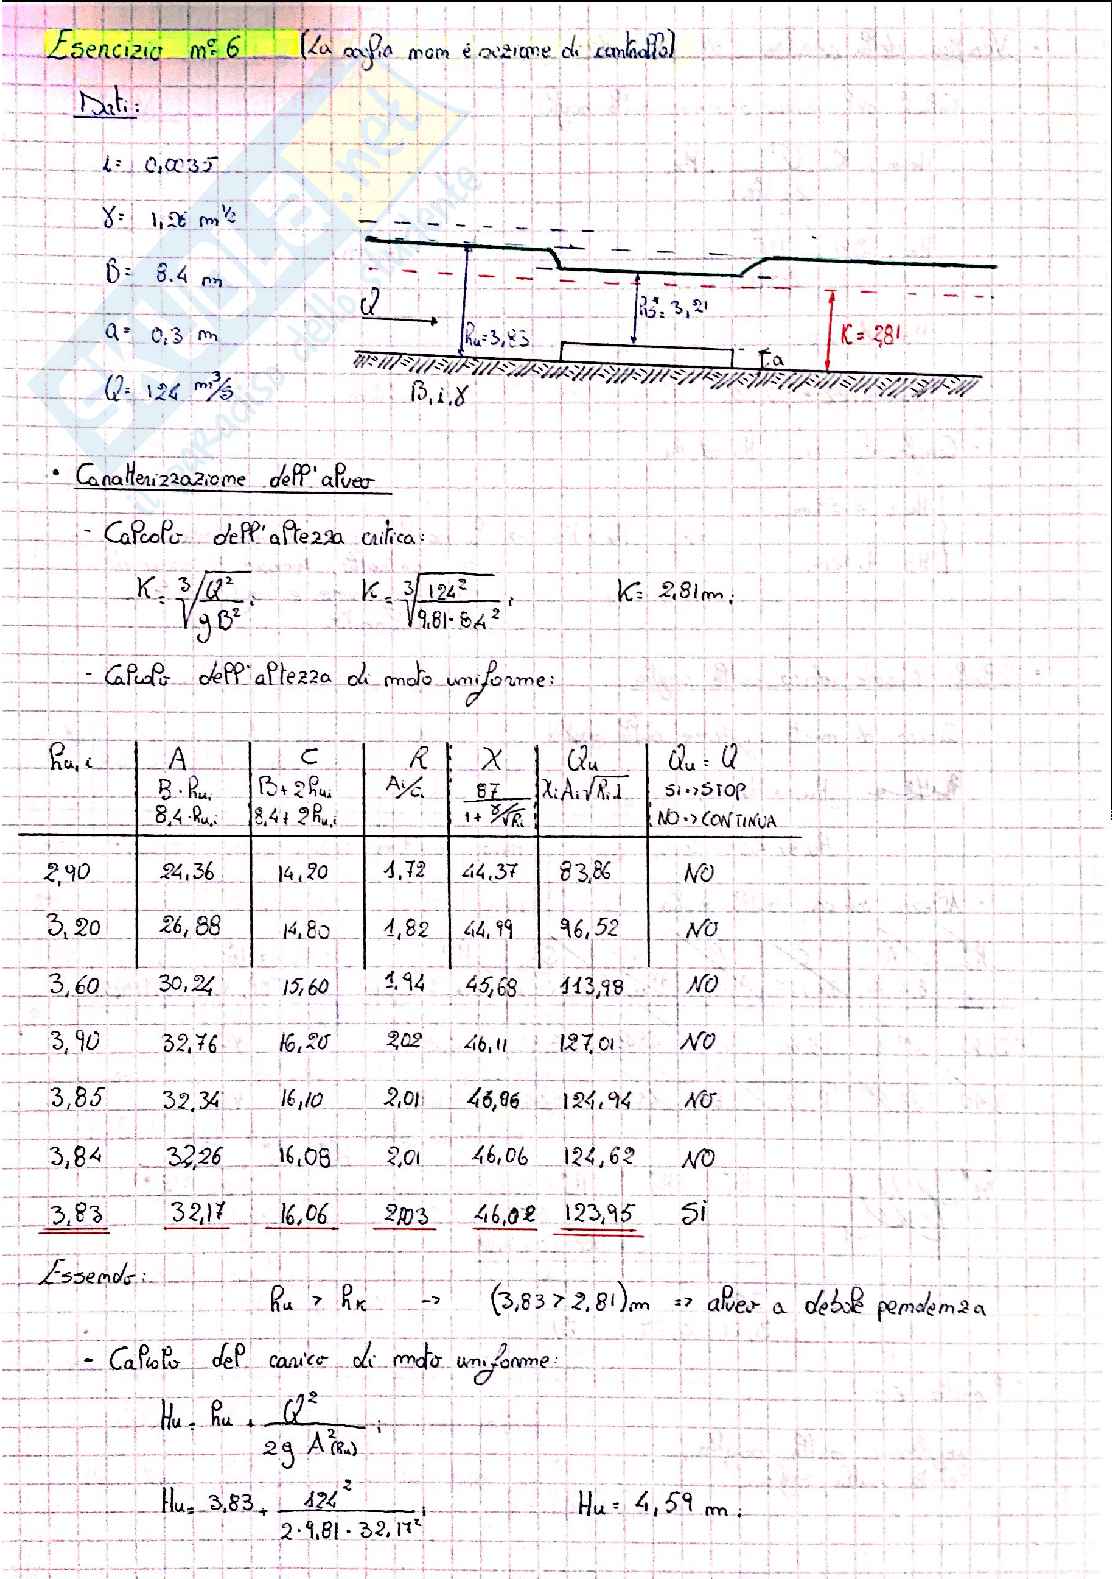 Esercizio n° 6 (La soglia non è sezione di controllo)
Dati:
i= 0,0035
γ= 1,26 m^1/2
B= 8.4 m
a= 0,3 m
Q= 124 m³/s
Q
hu=3,83
hs*= 3,21
K= 2,81
a
B, i, γ
• Caratterizzazione dell'alveo
- Calcolo dell'altezza critica:
K= ∛(Q²/gB²); K= ∛(124²/9.81·8.4²); K= 2,81 m;
- Calcolo dell'altezza di moto uniforme:
hu,i A C R X Qu Qu = Q
B·hu,i B+2hu,i Ai/Ci 87/(1+γ/√Ri) Xi Ai √(Ri i) SI=>STOP
8,4·hu,i 8,4+2hu,i NO=>CONTINUA
2,90 24,36 14,20 1,72 44,37 83,86 NO
3,20 26,88 14,80 1,82 44,99 96,52 NO
3,60 30,24 15,60 1,94 45,68 113,98 NO
3,90 32,76 16,20 2,02 46,11 127,01 NO
3,85 32,34 16,10 2,01 124,94 NO
3,84 32,26 16,08 2,01 46,06 124,62 NO
3,83 32,17 16,06 46,02 123,95 SI
Essendo:
hu > hK -> (3,83 > 2,81) m => alveo a debole pendenza
- Calcolo del carico di moto uniforme:
Hu = hu + Q²/(2g A²(hu));
Hu = 3,83 + 124²/(2·9,81·32,17²); Hu = 4,59 m;